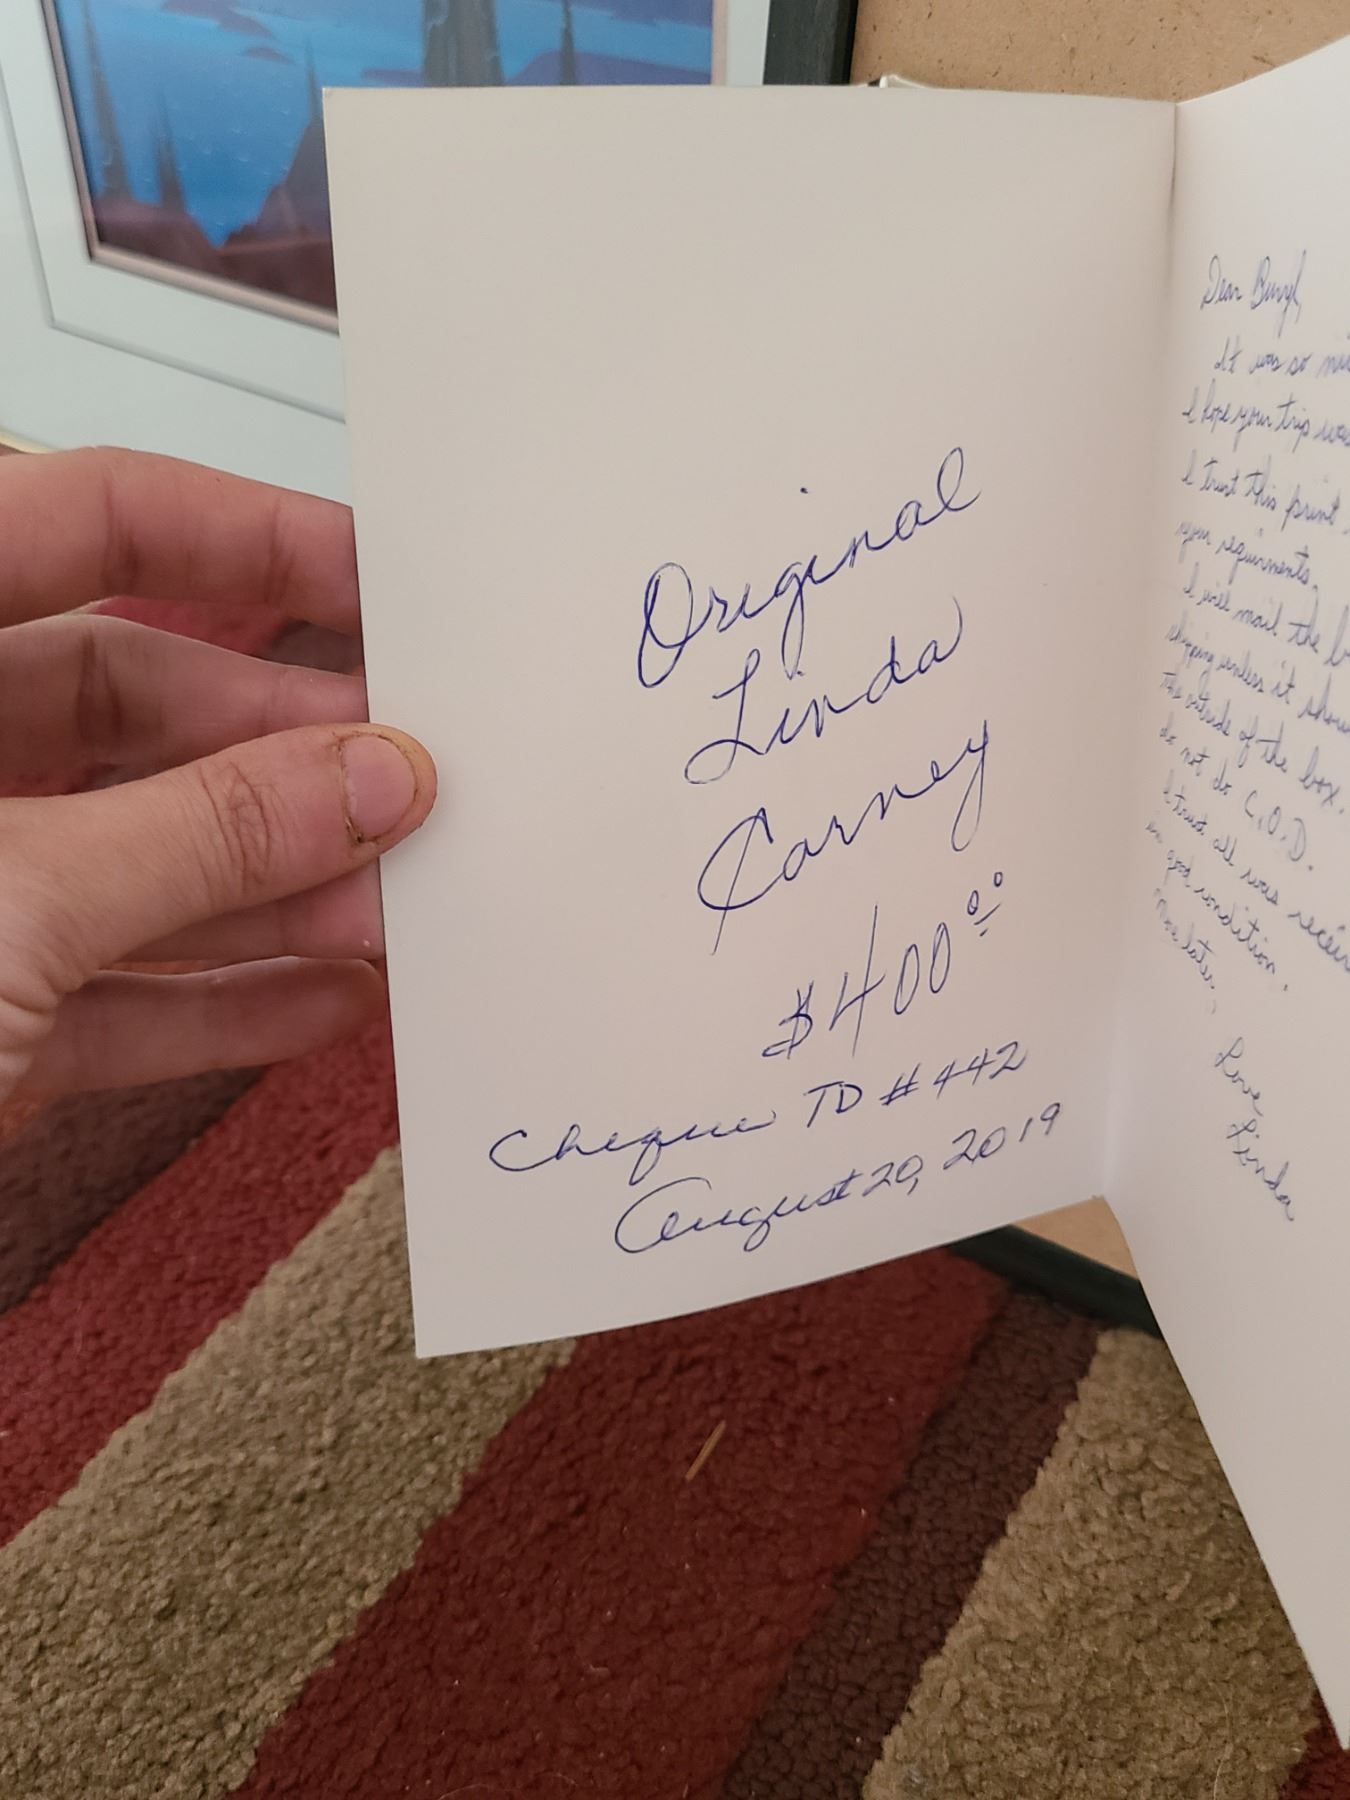 Original
Linda
Carney
$400.00
Cheque TD #442
August 20, 2019
Dear Beryl,
It was so
I hope your trip was
I trust this print
your requirments.
I will mail the
shipping unless it
the outside of the box.
do not do C.O.D.
I trust all was
in good condition.
later,
Love
Linda